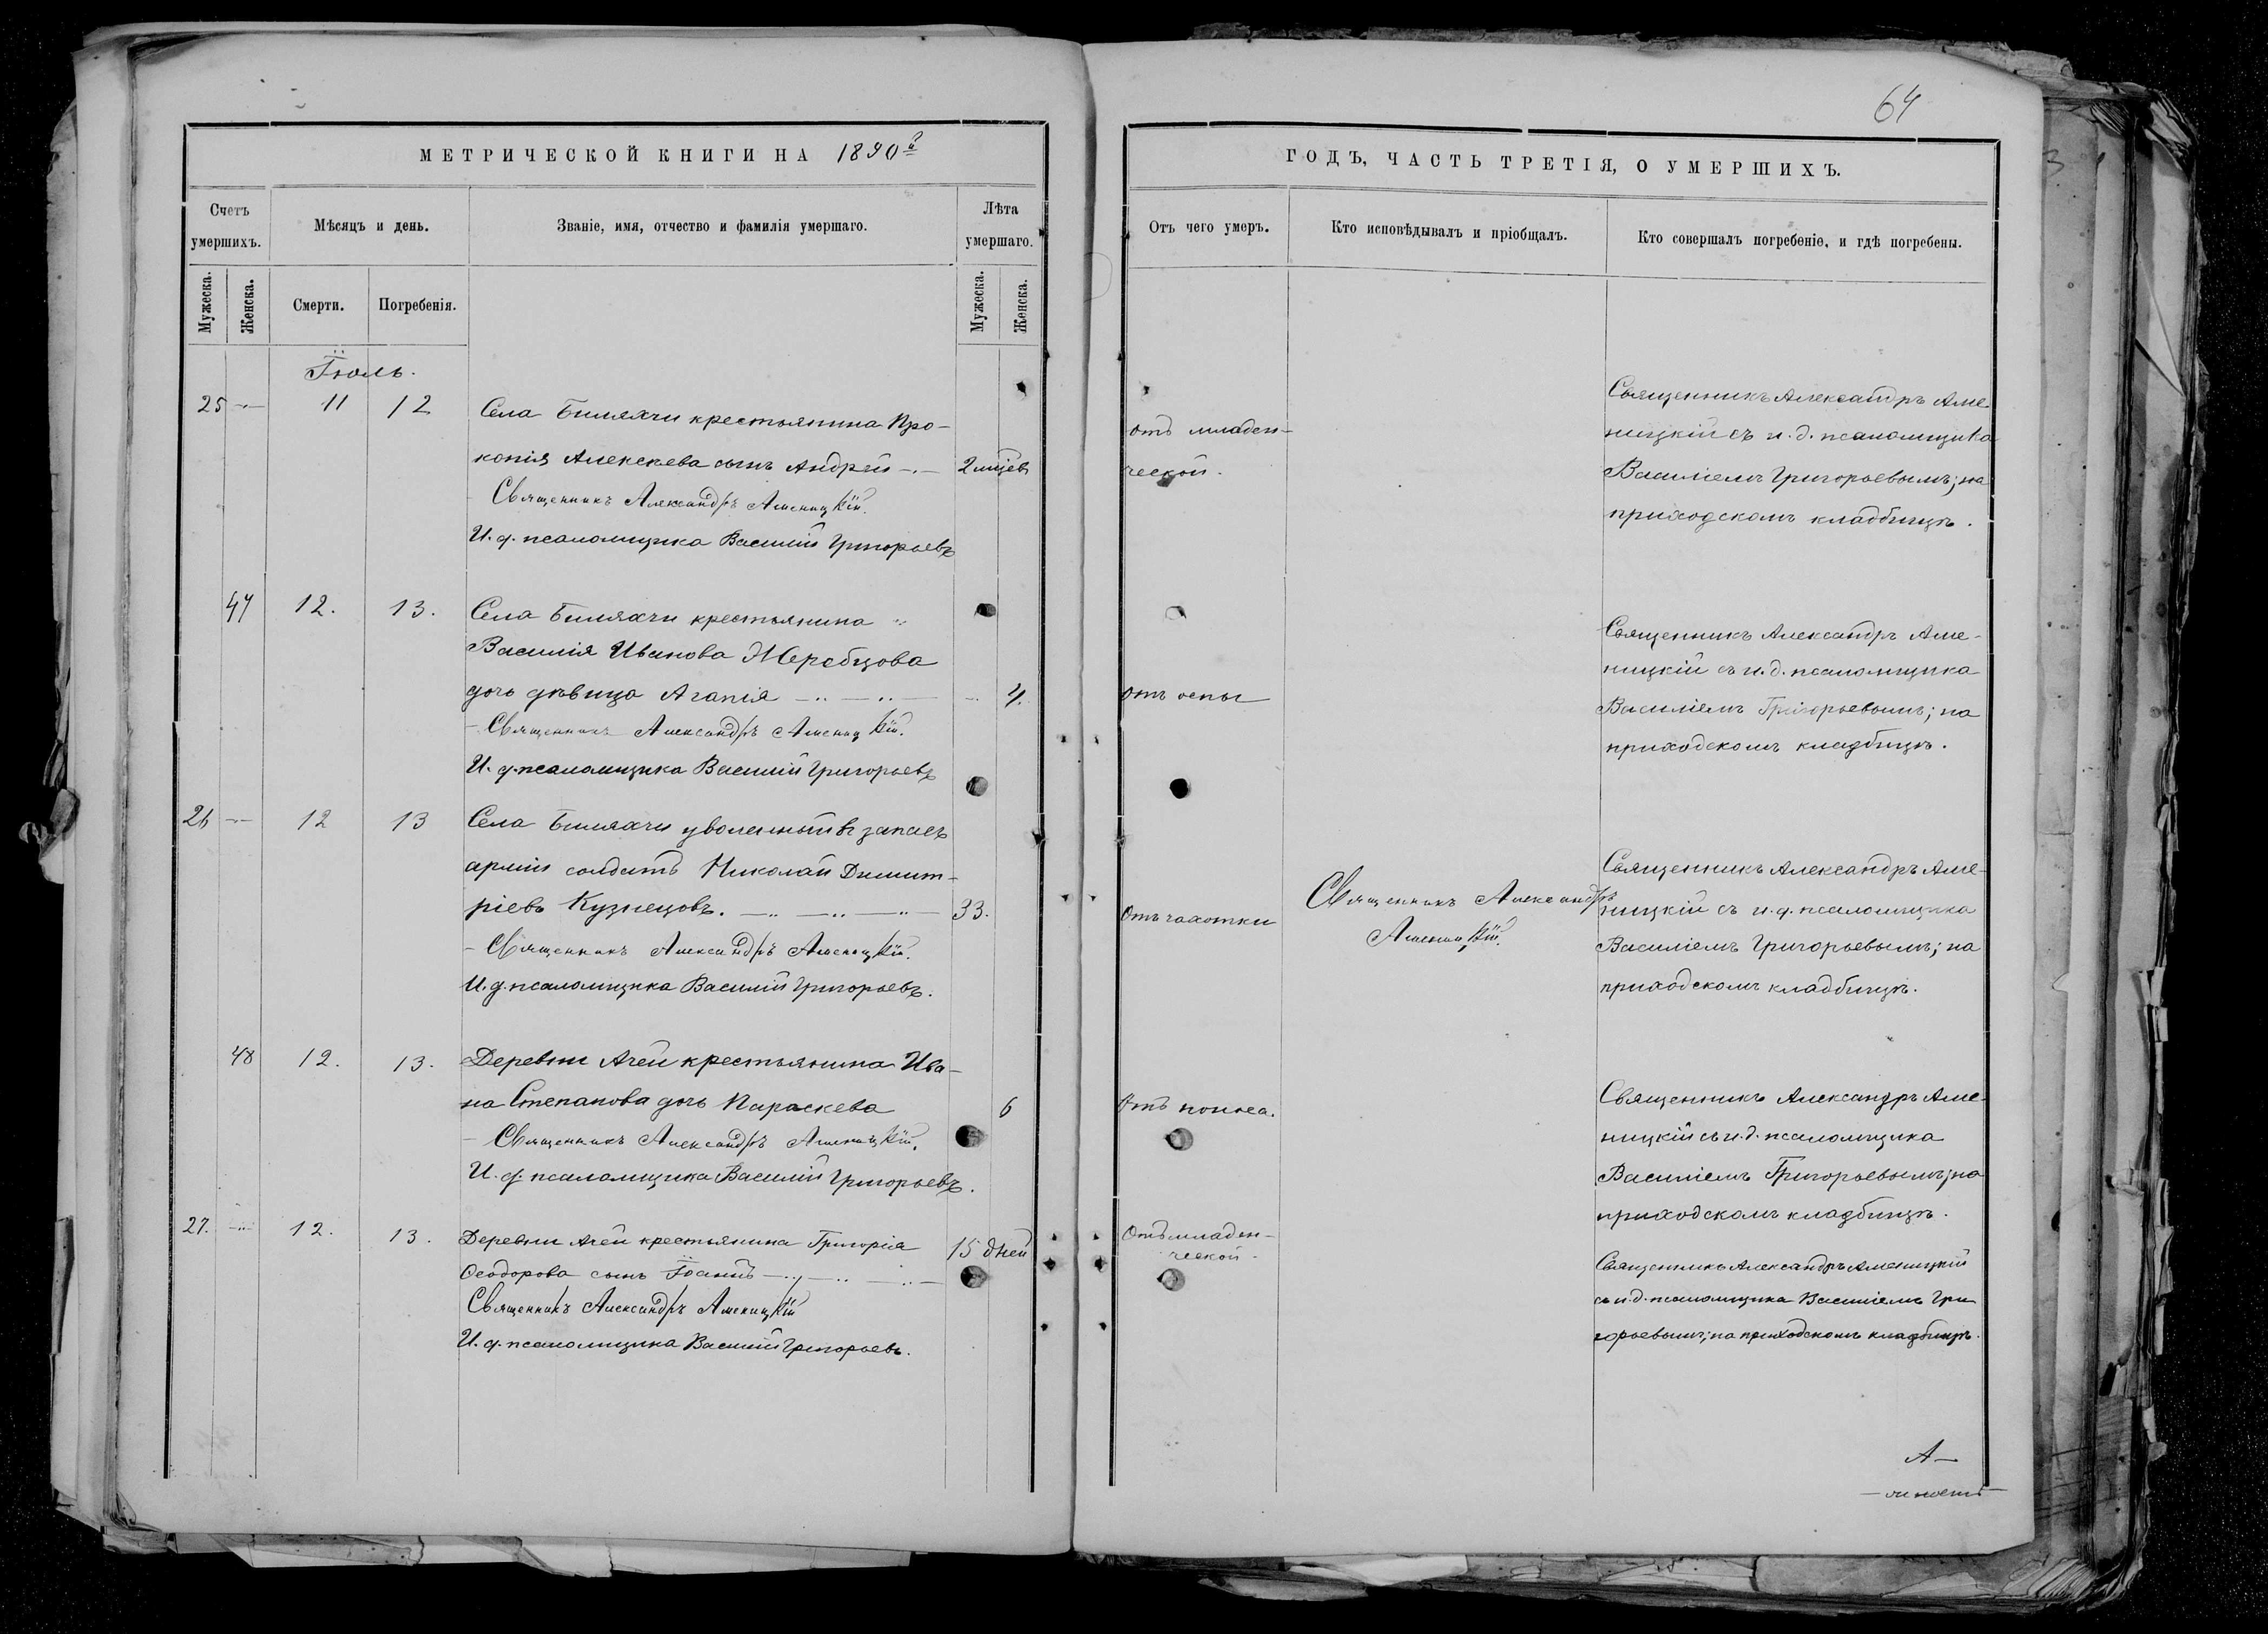 64
МЕТРИЧЕСКОЙ КНИГИ НА 1890й
Счетъ умершихъ.
Мѣсяцъ и день.
Званіе, имя, отчество и фамилія умершаго.
Лѣта умершаго.
Мужеска.
Женска.
Смерти.
Погребенія.
Мужеска.
Женска.
Іюль.
25 11 12 Села Билярчи крестьянина Про-
копія Алексѣева сынъ Андрей 2 мцев
Священникъ Александръ Аменицкій.
И. д. псаломщика Василій Григорьевъ
47 12. 13. Села Билярчи крестьянина
Василія Иванова Жеребцова
дочь дѣвица Агапія 4.
Священникъ Александръ Аменицкій.
И. д. псаломщика Василій Григорьевъ
26 12 13 Села Билярчи уволенный въ запасъ
арміи солдатъ Николай Димит-
ріевъ Кузнецовъ. 33.
Священникъ Александръ Аменицкій.
И. д. псаломщика Василій Григорьевъ.
48 12. 13. Деревни Ачей крестьянина Ива-
на Степанова дочь Параскева 6
Священникъ Александръ Аменицкій.
И. д. псаломщика Василій Григорьевъ.
27. 12. 13. Деревни Ачей крестьянина Григорія 15 дней
Ѳеодорова сынъ Іоаннъ
Священникъ Александръ Аменицкій
И. д. псаломщика Василій Григорьевъ.
ГОДЪ, ЧАСТЬ ТРЕТІЯ, О УМЕРШИХЪ.
Отъ чего умеръ.
Кто исповѣдывалъ и пріобщалъ.
Кто совершалъ погребеніе, и гдѣ погребены.
отъ младен-
ческой.
Священникъ Александръ Аме-
ницкій съ и. д. псаломщика
Василіемъ Григорьевымъ; на
приходскомъ кладбищѣ.
отъ оспы
Священникъ Александръ Аме-
ницкій съ и. д. псаломщика
Василіемъ Григорьевымъ; на
приходскомъ кладбищѣ.
Отъ чахотки
Священникъ Александръ
Аменицкій.
Священникъ Александръ Аме-
ницкій съ и. д. псаломщика
Василіемъ Григорьевымъ; на
приходскомъ кладбищѣ.
Отъ поноса.
Священникъ Александръ Аме-
ницкій съ и. д. псаломщика
Василіемъ Григорьевымъ; на
приходскомъ кладбищѣ.
Отъ младен-
ческой.
Священникъ Александръ Аменицкій
съ и. д. псаломщика Василіемъ Гри
горьевымъ; на приходскомъ кладбищѣ.
А—